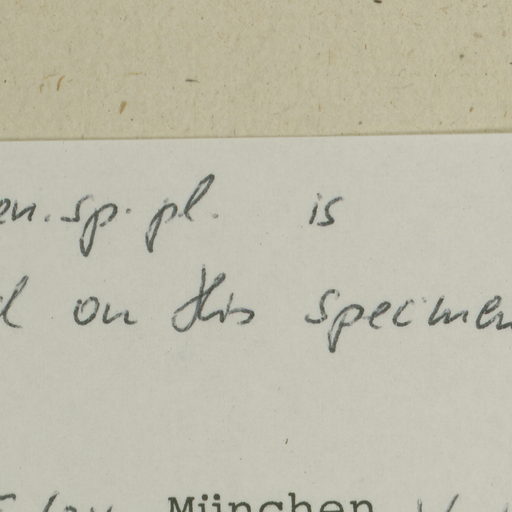 en. sp. pl. is
on this specimen
München